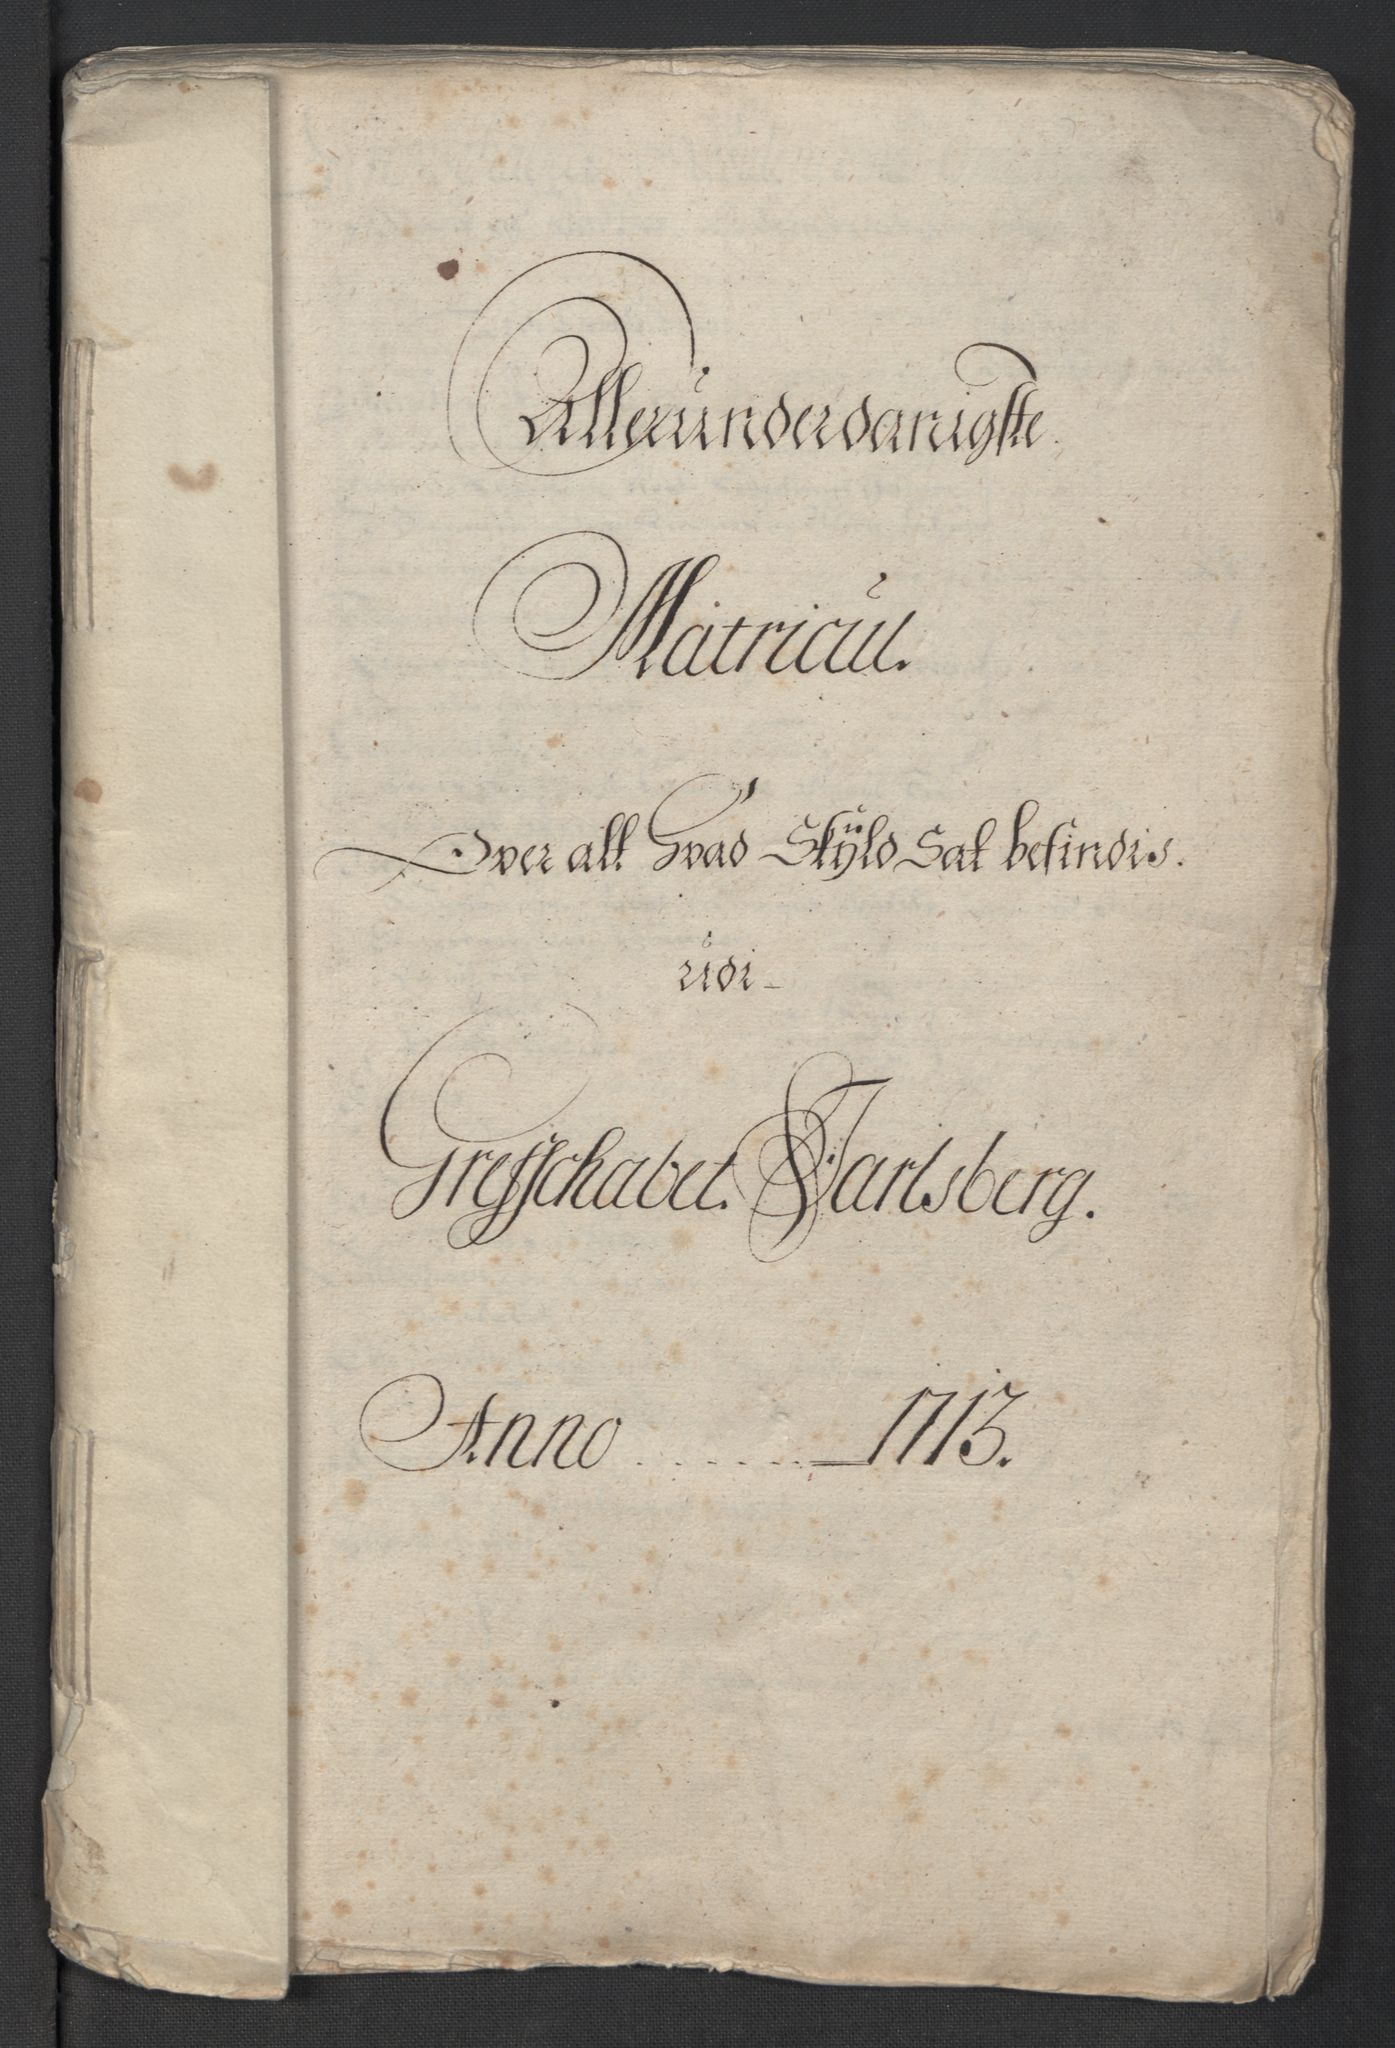 Alleründerdanigste
Matricül.
Over alt hvad Skÿld Sal befindis.
üdi
Greffschabet Jarlsberg.
Anno . . . . . . . 1713.